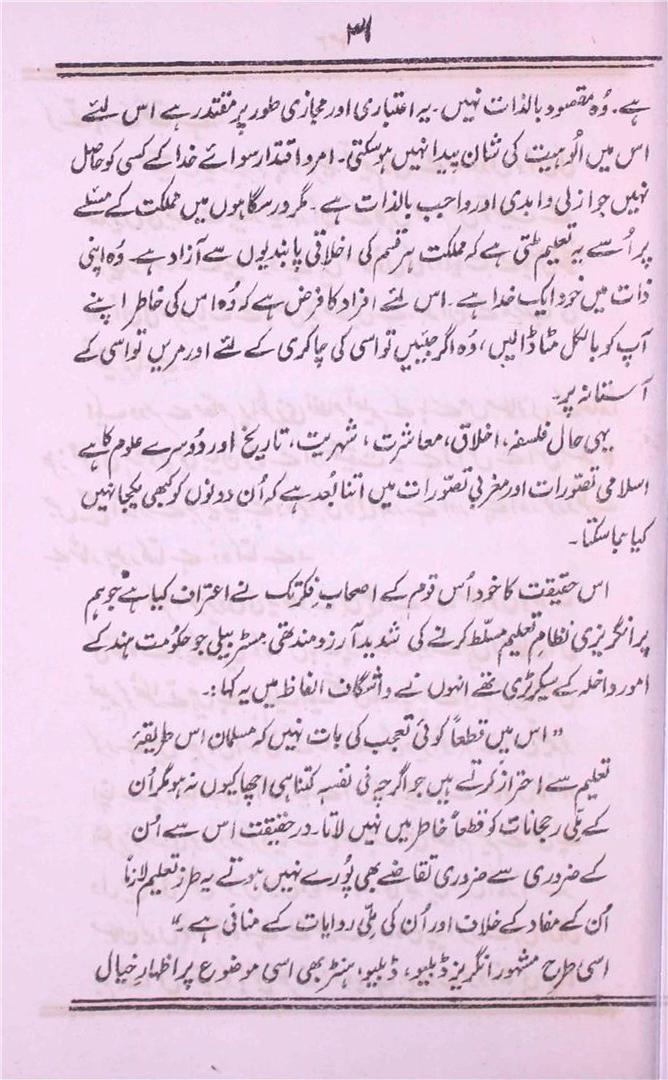 ۳۱
ہے۔ وُہ مقصود بالذات نہیں۔ یہ اعتباری اور مجازی طور پر مقتدر ہے اس لئے
اس میں الُوہیت کی شان پیدا نہیں ہو سکتی۔ امر و اقتدار سوائے خدا کے کسی کو حاصل
نہیں جو ازلی و ابدی اور واجب بالذات ہے۔ مگر درسگاہوں میں مملکت کے مسئلے
پر اُسے یہ تعلیم ملتی ہے کہ مملکت ہر قسم کی اخلاقی پابندیوں سے آزاد ہے۔ وُہ اپنی
ذات میں خود ایک خدا ہے۔ اس لئے افراد کا فرض ہے کہ وُہ اس کی خاطر اپنے
آپ کو بالکل مٹا ڈالیں، وُہ اگر جئیں تو اسی کی چاکری کے لئے اور مریں تو اسی کے
آستانہ پر۔
یہی حال فلسفہ، اخلاق، معاشرت، شہریت، تاریخ اور دُوسرے علوم کا ہے
اسلامی تصوّرات اور مغربی تصوّرات میں اتنا بُعد ہے کہ اُن دونوں کو کبھی یکجا نہیں
کیا جا سکتا۔
اس حقیقت کا خود اُس قوم کے اصحابِ فکر تک نے اعتراف کیا ہے جو ہم
پر انگریزی نظامِ تعلیم مسلّط کرنے کی شدید آرزو مند تھی۔ مسٹر بیلی جو حکومت ہند کے
امور داخلہ کے سیکرٹری تھے انہوں نے واشگاف الفاظ میں یہ کہا:۔
”اس میں قطعاً کوئی تعجب کی بات نہیں کہ مسلمان اس طریقۂ
تعلیم سے احتراز کرتے ہیں جو اگرچہ فی نفسہٖ کتنا ہی اچھا کیوں نہ ہو مگر اُن
کے ملّی رجحانات کو قطعاً خاطر میں نہیں لاتا۔ در حقیقت اس سے اُن
کے ضروری سے ضروری تقاضے بھی پُورے نہیں ہوتے یہ طرز تعلیم لازماً
اُن کے مفاد کے خلاف اور اُن کی ملّی روایات کے منافی ہے۔“
اسی طرح مشہور انگریز ڈبلیو، ڈبلیو، ہنٹر بھی اسی موضوع پر اظہارِ خیال